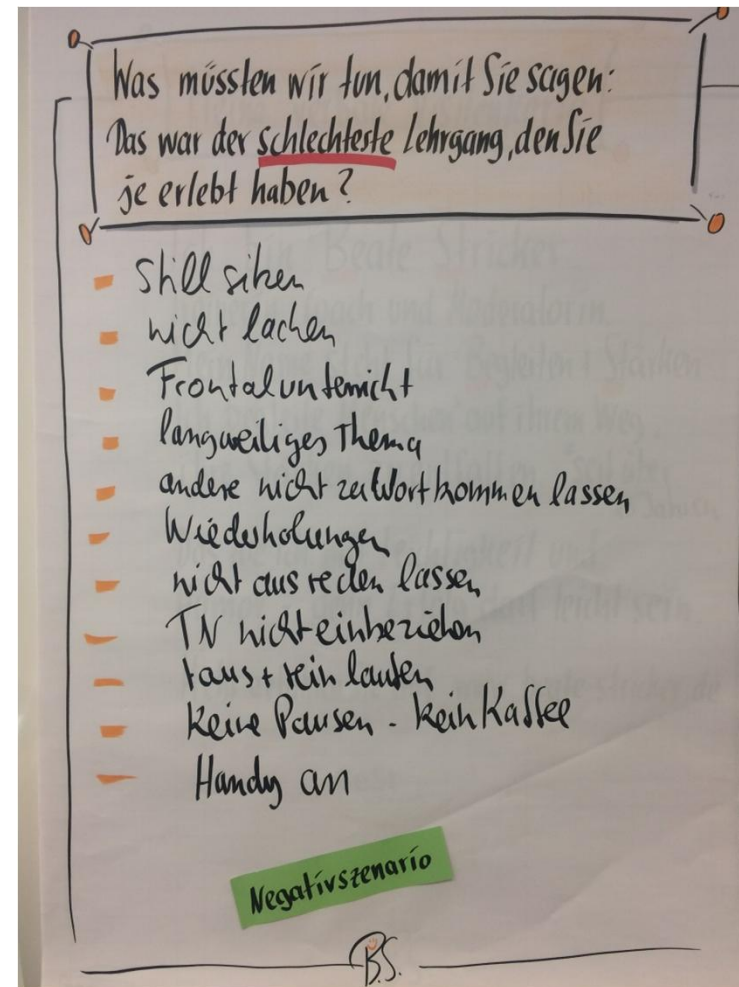 Was müssten wir tun, damit Sie sagen:
Das war der schlechteste Lehrgang, den Sie
je erlebt haben?
Still sitzen
nicht lachen
Frontalunterricht
langweiliges Thema
andere nicht zu Wort kommen lassen
Wiederholungen
nicht ausreden lassen
TN nicht einbeziehen
raus + rein laufen
Keine Pausen - kein Kaffee
Handy an
Negativszenario
B.S.